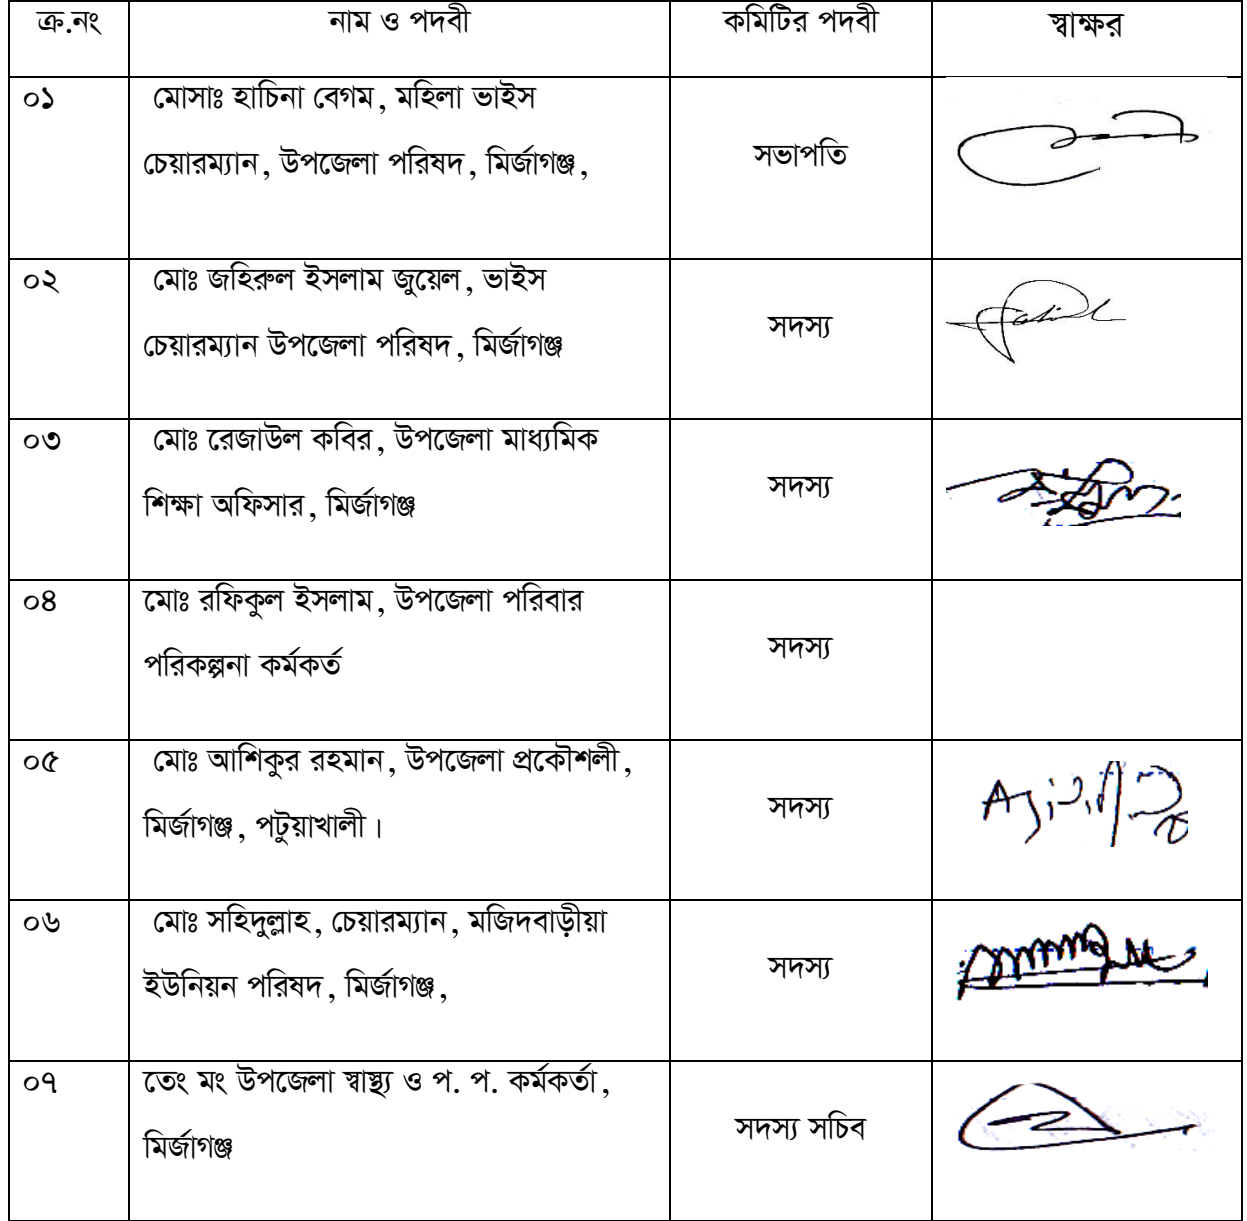 ক্র.নং নাম ও পদবী কমিটির পদবী স্বাক্ষর
০১ মোসাঃ হাচিনা বেগম, মহিলা ভাইস
চেয়ারম্যান, উপজেলা পরিষদ, মির্জাগঞ্জ,
সভাপতি
০২ মোঃ জহিরুল ইসলাম জুয়েল, ভাইস
চেয়ারম্যান উপজেলা পরিষদ, মির্জাগঞ্জ
সদস্য
০৩ মোঃ রেজাউল কবির, উপজেলা মাধ্যমিক
শিক্ষা অফিসার, মির্জাগঞ্জ
সদস্য
০৪ মোঃ রফিকুল ইসলাম, উপজেলা পরিবার
পরিকল্পনা কর্মকর্ত
সদস্য
০৫ মোঃ আশিকুর রহমান, উপজেলা প্রকৌশলী,
মির্জাগঞ্জ, পটুয়াখালী।
সদস্য
০৬ মোঃ সহিদুল্লাহ, চেয়ারম্যান, মজিদবাড়ীয়া
ইউনিয়ন পরিষদ, মির্জাগঞ্জ,
সদস্য
০৭ তেং মং উপজেলা স্বাস্থ্য ও প. প. কর্মকর্তা,
মির্জাগঞ্জ
সদস্য সচিব